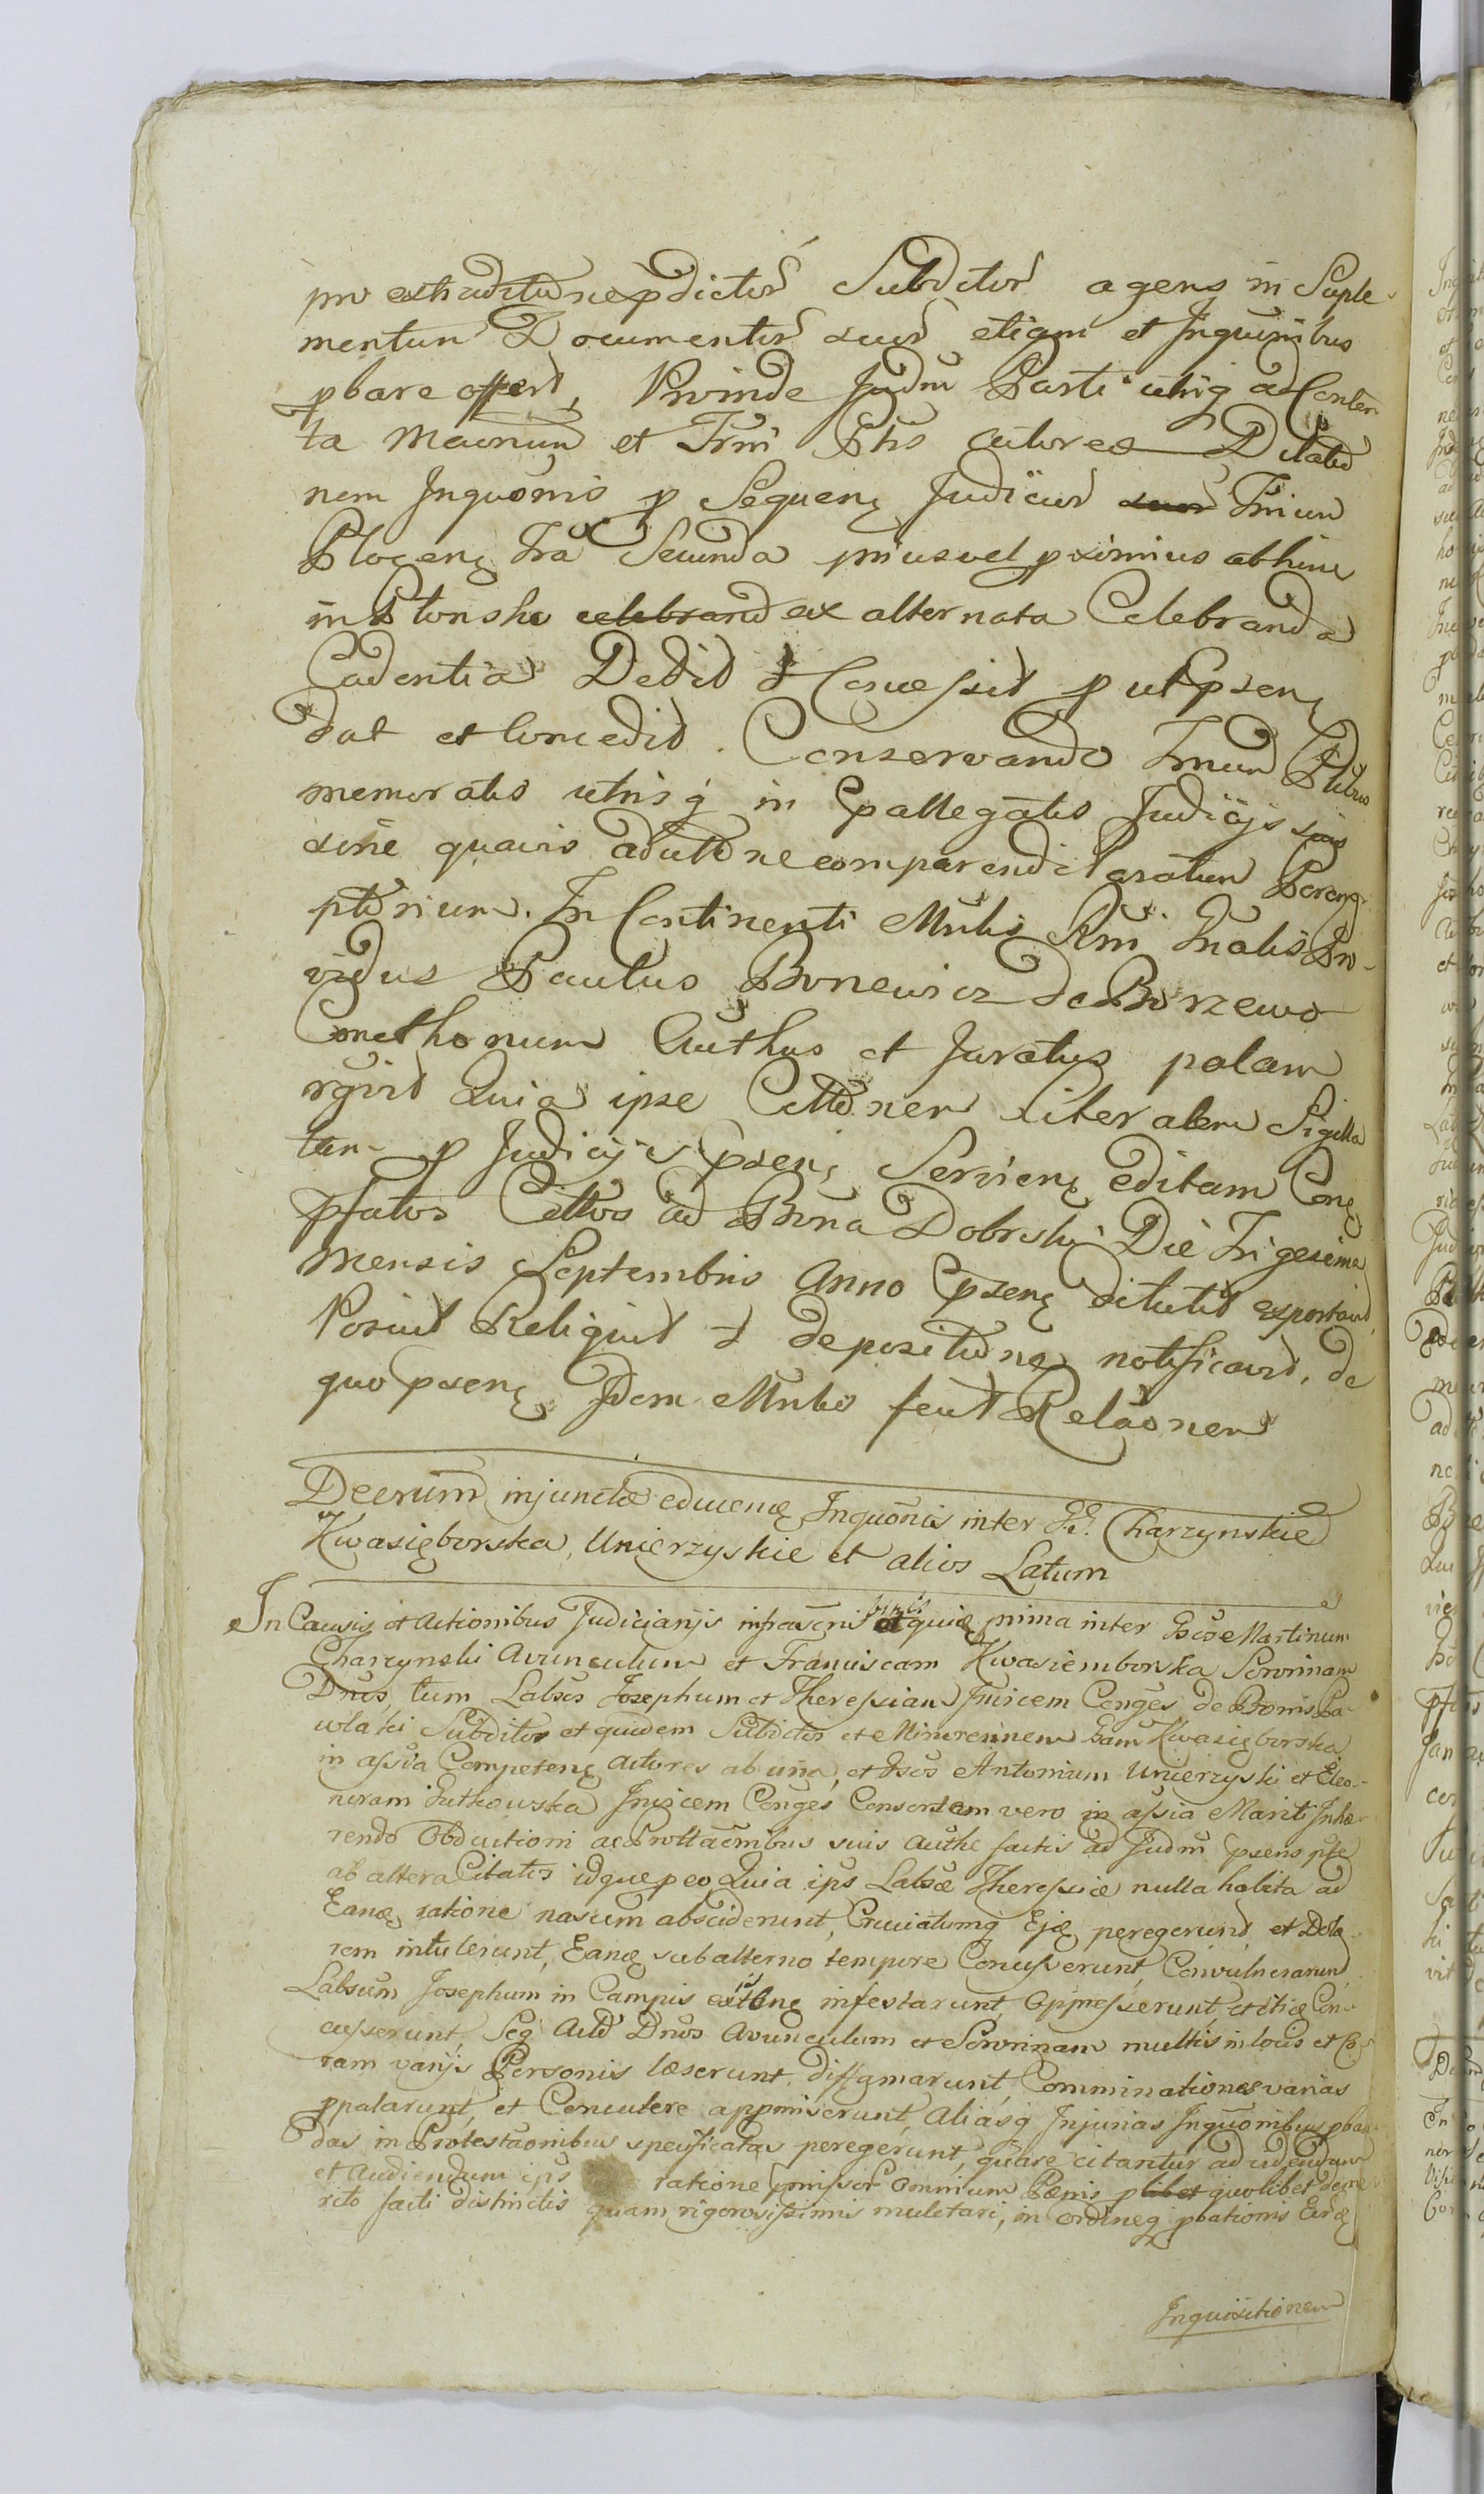 pro extraditione pdictor Subditor agens in Suple-
mentum Documentor suor etiam et Inquōnibus
pbare offert, Proinde Judm Parti utriq ad Conten-
ta et Trni Ptis Actorea Dilatio
nem Inquōnis p Sequenę Judicior Trnium
Plocenę Fra Secunda prius vel pximius abhinc
in Plonsko celebrand ex alternata Celebranda
Cadentia Dedit & Concessit p ut psenę
dat et Concedit. Conservando Trnum Ptibus
memoratis utrisq in pallegatis Judicijs
sine quavis aducitōne comparendi Paratum Peremp-
ptorium. In Continenti Mntlis Rni Gnalis Pro-
vidus Paulus Bonewicz de Borzewo
Cmethonum Authus et Juratus palam
rgvit Quia ipse Cittōnem literalem Sigilla
tam p Judicijs psenę Servienę editam Conę
pfatos Cittos ad Bona Dobrsky Die Trigesima
mensis Septembris Anno psenę ditulit exportavit,
Posuit Reliquit & depositionę notificavit, de
quo psenę Idem Mntlis fecit Relaōnem
Decrum injunctæ educenę Inquōnis inter GG. Charzynskie
Kwasięborska, Unierzyskie et alios Latum
In Causis et Actionibus Judicianijs infrascris binis et quię prima inter Gsos Martinum
Charzynski Avunculum et Franciscam Kwasiemborska Sororinam
Dnos, tum Labsos Josephum et Theressiam Invicem Conges de Bonis Pa-
wlaki Subditos et quidem Subditos et Minorennem Gam Kwasięborska
in assia Competenę Actores ab una, et Gsos Antonium Unierzyski et Eleo-
noram Gutkowska Invicem Conges Consortem vero in assia Mariti Inhæ-
rendo Obductioni ac Prottaōnibus suis Authe factis ad Judm psens pte
ab altera Citatos idque p eo Quia ips Labsæ Theressiæ nulla habita ad
Eanę ratione nasum absciderunt, Cruciatumq Ejæ peregerunt, et Dolo
rem intulerunt, Eanę sub alterno tempore Concusserunt, Convulnerarunt,
Labsum Josephum in Campis infestarunt, Oppresserunt, et Con-
cusserunt, Seq Actō Dnos Avunculum et Sororinam multis in locis et Co-
ram varijs Personis læserunt, diffamarunt, Comminationes varias
ppalarunt, et Concutere appromiserunt, Aliasq Injurias Inquōnibus pban-
das in Protestaōnibus specificatas peregerunt, quare citantur ad videndum
et Audiendum ips ratione pmissor Omnium Pœnis plibet quolibet deme-
rito facti distinctis quam rigorosissimis mulctari, in ordineq pbationis Eorę
Inquisitionem